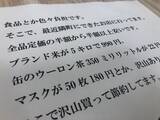 食品とか色々負担です。
そこで、最近隣町にできたお店に行ってます。
全品定価の半額から半額以上安いです。
ブランド米が5キロで999円、
缶のウーロン茶350ミリリットルが22円
マスクが50枚180円とか、
ここで沢山買って節約してます